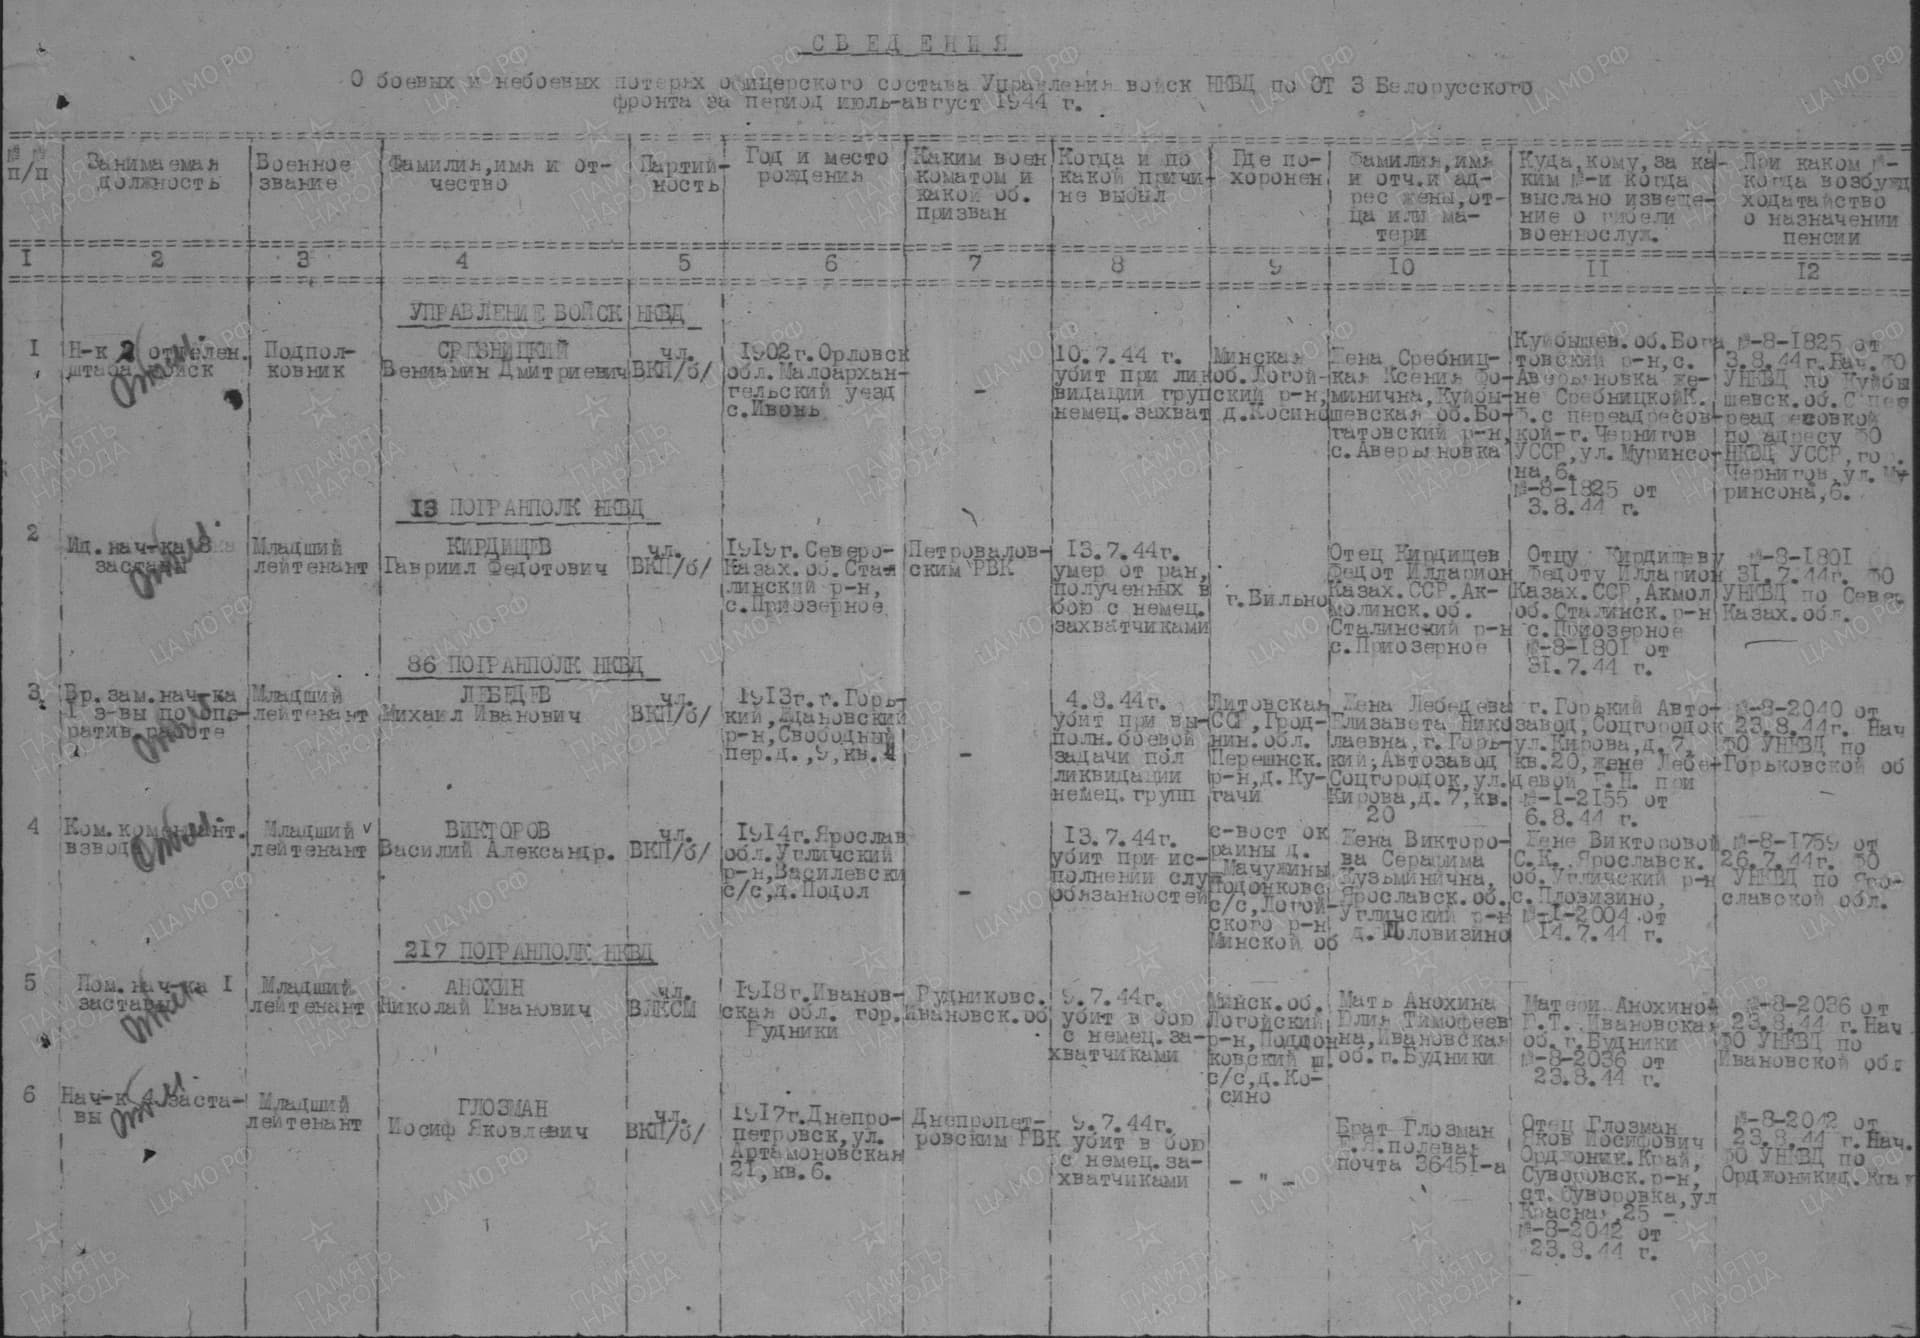 СВЕДЕНИЯ
О боевых и небоевых потерях офицерского состава Управления войск НКВД по ОТ 3 Белорусского
фронта за период июль-август 1944 г.
№ №
п/п
Занимаемая
должность
Военное
звание
Фамилия,имя и от-
чество
Партий-
ность
Год и место
рождения
Каким воен
коматом и
какой об.
призван
Когда и по
какой причи-
не выбыл
Где по-
хоронен
Фамилия,имя
и отч.и ад-
рес жены,от-
ца или ма-
тери
Куда,кому,за ка-
ким №-и когда
выслано извеще-
ние о гибели
военнослуж.
При каком №-
когда возбужд
ходатайство
о назначении
пенсии
I 2 3 4 5 6 7 8 9 10 II I2
УПРАВЛЕНИЕ ВОЙСК НКВД
I
Н-к 2 отделен.
штаба войск
Подпол-
ковник
СРЕБНИЦКИЙ
Вениамин Дмитриевич
чл.
ВКП/б/
1902г.Орловск
обл.Малоархан-
гельский уезд
с.Ивонь
-
10.7.44 г.
убит при лик
видации груп
немец.захват
Минская
об.Логой-
ский р-н,
д.Косино
Жена Сребниц-
кая Ксения Фо-
минична,Куйбы-
шевская об.Бо-
гатовский р-н,
с.Аверьяновка
Куйбышев.об.Бога
товский р-н,с.
Аверьяновка же-
не СребницкойК.
Ф.с переадресов-
кой-г.Чернигов
УССР,ул.Муринсо-
на,6.
№-8-1825 от
3.8.44 г.
№-8-1825 от
3.8.44г.Нач.ФО
УНКВД по Куйбы
шевск.об.С пее
реадресовкой
по адресу ФО
НКВД УССР,го .
Чернигов,ул.Му-
ринсона,6.
I3 ПОГРАНПОЛК НКВД
2
Ид.нач-ка 3
заставы
Младший
лейтенант
КИРДИЩЕВ
Гавриил Федотович
чл.
ВКП/б/
1919г.Северо-
Казах.об.Ста-
линский р-н,
с.Приозерное
Петровалов-
ским РВК
13.7.44г.
умер от ран,
полученных в
бою с немец.
захватчиками
г.Вильно
Отец Кирдищев
Федот Илларион
Казах.ССР.Ак-
молинск.об.
Сталинский р-н
с.Приозерное
Отцу Кирдищеву
Федоту Илларион
Казах.ССР,Акмол
об.Сталинск.р-н
с.Приозерное
№-8-1801 от
31.7.44 г.
№-8-1801
31.7.44г. ФО
УНКВД по Север
Казах.обл.
86 ПОГРАНПОЛК НКВД
3
Вр.зам.нач-ка
I з-вы по опе-
ратив.работе
Младший
лейтенант
ЛЕБЕДЕВ
Михаил Иванович
чл.
ВКП/б/
1913г.г.Горь-
кий,Ждановский
р-н,Свободный
пер.д.,9,кв.4
-
4.8.44г.
убит при вы-
полн.боевой
задачи пол
ликвидации
немец.групп
Литовская
ССР,Грод-
нин.обл.
Перешнск.
р-н,д.Ку-
гачи
Жена Лебедева
Елизавета Нико
лаевна,г.Горь-
кий,Автозавод
Соцгородок,ул.
Кирова,д.7,кв.
20
г.Горький Авто-
завод,Соцгородок
ул.Кирова,д.7,
кв.20,жене Лебе-
девой Е.Н. при
№-I-2155 от
6.8.44 г.
№-8-2040 от
23.8.44г. Нач
ФО УНКВД по
Горьковской об
4
Ком.комендант.
взвода
Младший
лейтенант
ВИКТОРОВ
Василий Александр.
чл.
ВКП/б/
1914г.Ярослав
обл.Угличский
р-н,Василевски
с/с,д.Подол
-
13.7.44г.
убит при ис-
полнении слу
обязанностей
с-вост ок
раины д.
Мачужины
Подонковс
с/с,Логой-
ского р-н
Минской об
Жена Викторо-
ва Серафима
Кузьминична,
Ярославск.об.
Угличский р-н
д.Пловизино
Жене Викторовой
С.К. Ярославск.
об.Угличский р-н
с.Пловизино,
№-I-2004 от
14.7.44 г.
№-8-1759 от
26.7.44г. ФО
УНКВД по Яро-
славской обл.
217 ПОГРАНПОЛК НКВД
5
Пом.нач-ка I
заставы
Младший
лейтенант
АНОХИН
Николай Иванович
чл.
ВЛКСМ
1918г.Иванов-
ская обл. гор.
Рудники
Рудниковс.
Ивановск.об
9.7.44г.
убит в бою
с немец.за-
хватчиками
Минск.об.
Логойский
р-н,Поддон
ковский ш.
с/с,д.Ко-
сино
Мать Анохина
Юлия Тимофеев
на,Ивановская
об.г.Будники
Матери Анохиной
Г.Т. Ивановская
об.г.Будники
№-8-2036 от
23.8.44 г.
№-8-2036 от
23.8.44 г.Нач
ФО УНКВД по
Ивановской обл
6
Нач-к 4 заста-
вы
Младший
лейтенант
ГЛОЗМАН
Иосиф Яковлевич
чл.
ВКП/б/
1917г.Днепро-
петровск,ул.
Артамоновская
21,кв.6.
Днепропет-
ровским РВК
9.7.44г.
убит в бою
с немец.за-
хватчиками
- " -
Брат Глозман
Г.Я.полевая
почта 36451-а
Отец Глозман
Яков Иосифович
Орджоник.Край,
Суворовск.р-н,
ст.Суворовка,ул
Красная,25 -
№-8-2042 от
23.8.44 г.
№-8-2042 от
23.8.44 г.Нач.
ФО УНКВД по
Орджоникид.Кра